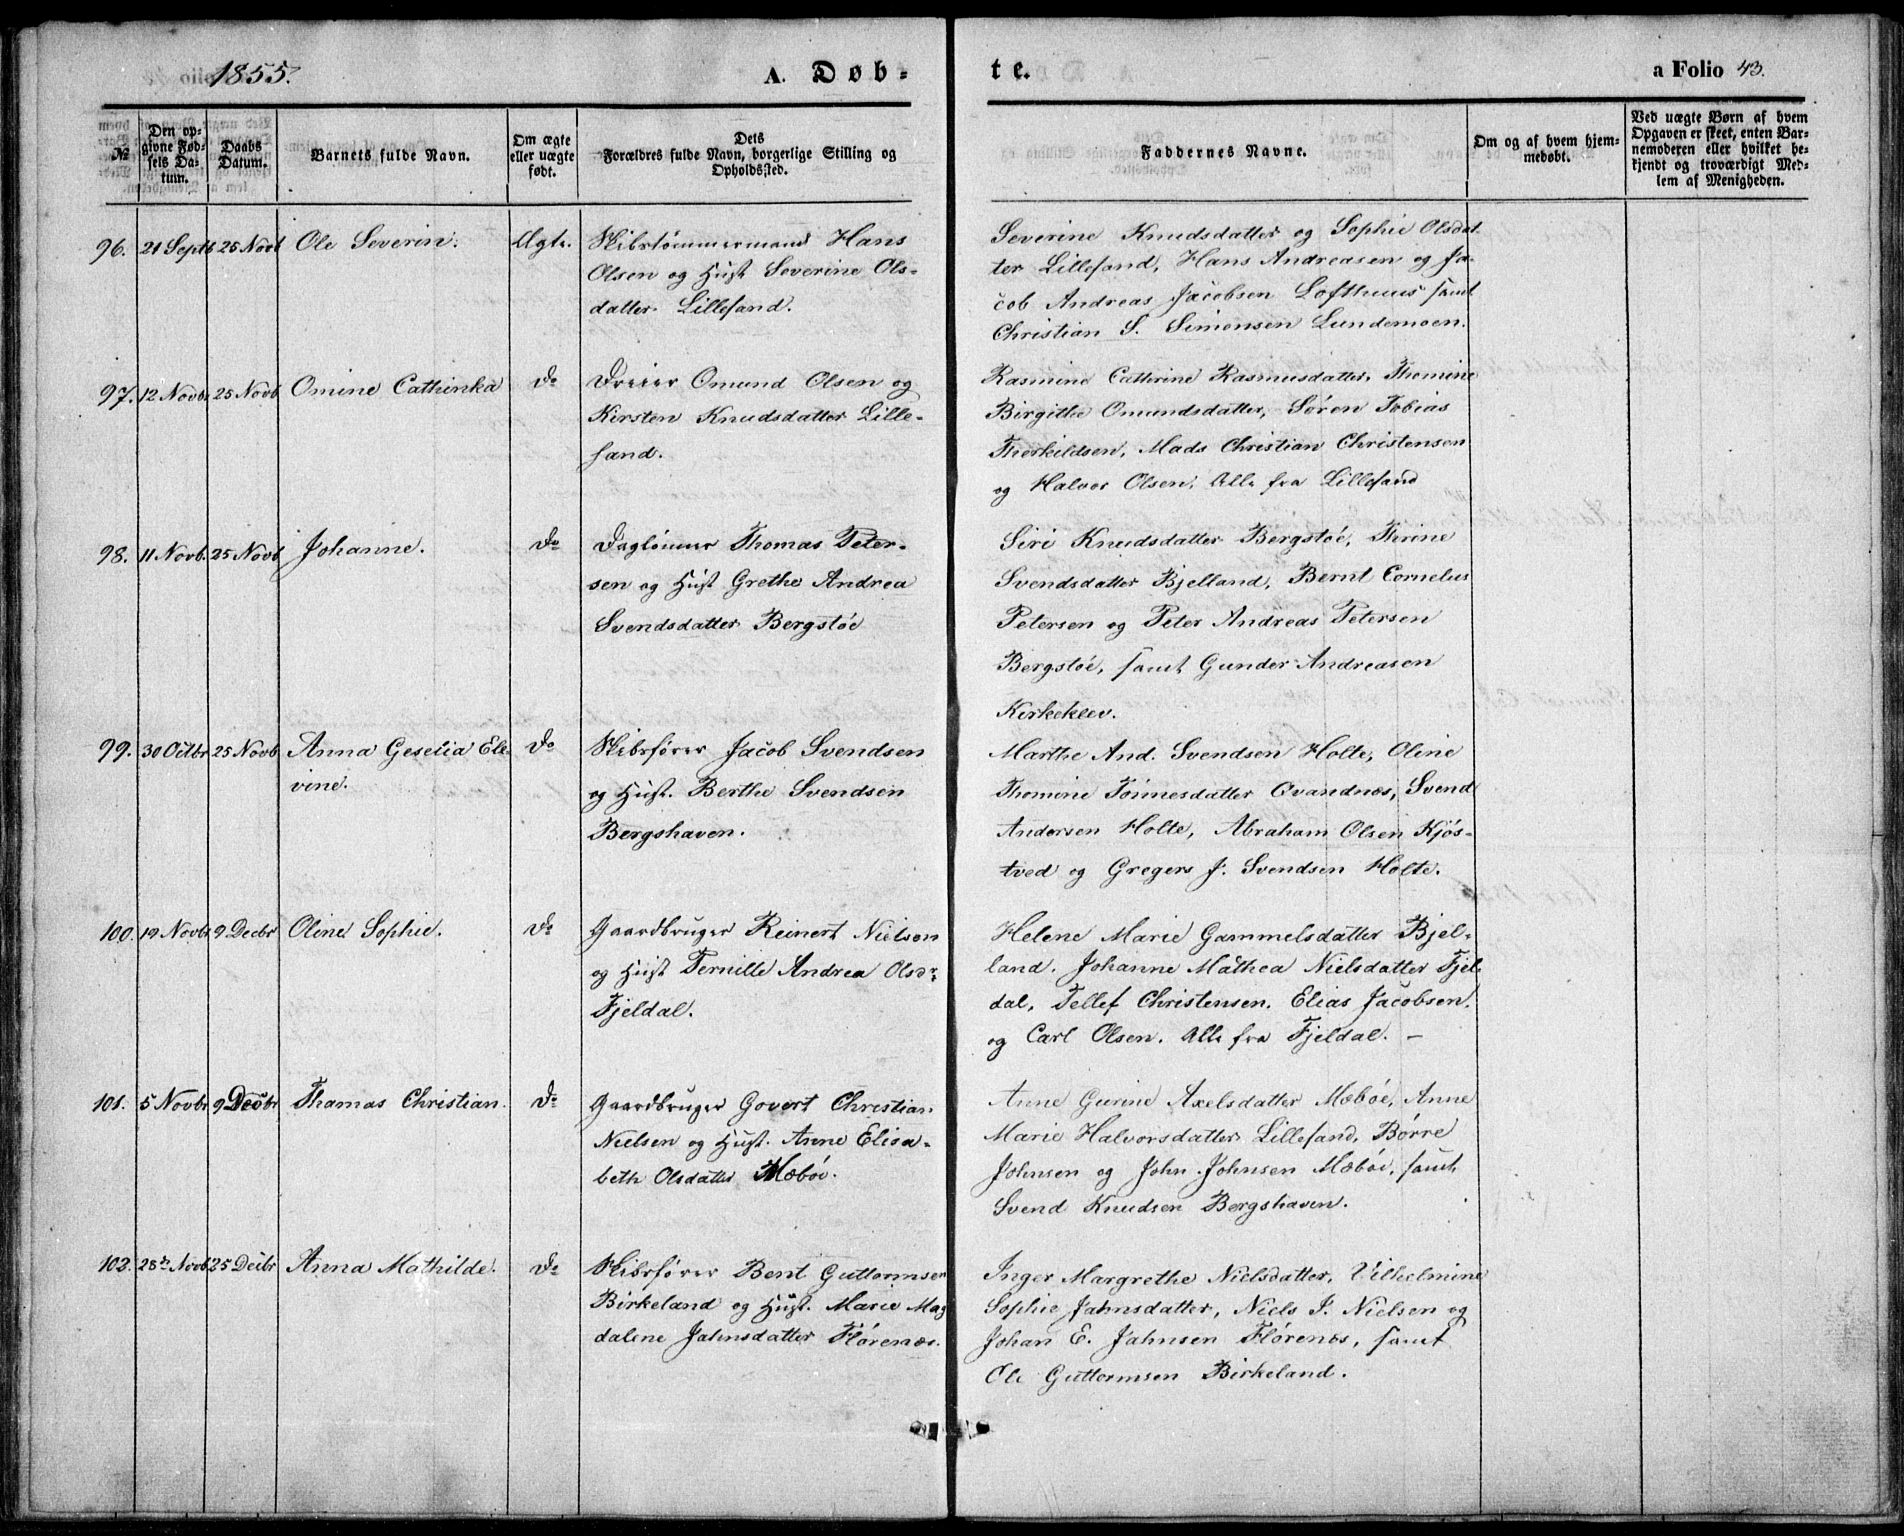 1855.
A. Døb-
te.
a Folio 43.
№
Den op-
givne Fød-
sels Da-
tum.
Daabs
Datum.
Barnets fulde Navn.
Om ægte
eller uægte
født.
Dets
Forældres fulde Navn, borgerlige Stilling og
Opholdssted.
Faddernes Navne.
Om og af hvem hjem-
medøbt.
Ved uægte Børn af hvem
Opgaven er skeet, enten Bar-
nemoderen eller hvilket be-
kjendt og troværdigt Med-
lem af Menigheden.
96. 21 Septb 25 Novb Ole Severin. Ægte. Skibstømmermand Hans
Olsen og Hust Severine Ols-
datter Lillesand.
Severine Knudsdatter og Sophie Olsdat
ter Lillesand, Hans Andreasen og Ja-
cob Andreas Jacobsen Lofthuus samt
Christian S. Simonsen Lundemoen.
97. 12 Novbr 25 Novb Omine Cathinka Do Dreier Omund Olsen og
Kirsten Knudsdatter Lille-
sand.
Rasmine Cathrine Rasmusdatter, Thomine
Birgithe Omundsdatter, Søren Tobias
Therkildsen, Mads Christian Christensen
og Halvor Olsen, Alle fra Lillesand
98. 11 Novb. 25 Novb Johanne. Do Daglønner Thomas Peter-
sen og Hust Grethe Andrea
Svendsdatter Bergstøe
Siri Knudsdatter Bergstøe, Thrine
Svendsdatter Bjelland, Bernt Cornelius
Petersen og Peter Andreas Petersen
Bergstøe, samt Gunder Andreasen
Kirkeklev.
99. 30 Octbr 25 Novb Anna Geselia Ele-
vine.
Do Skibsfører Jacob Svendsen
og Hust. Berthe Svendsen
Bergshaven.
Marthe And. Svendsen Holte, Oline
Thomine Tønnesdatter Qvandnes, Svend
Andersen Holte, Abraham Olsen Kjøs-
tved og Gregers J. Svendsen Holte.
100. 19 Novbr 9 Decbr Oline Sophie. Do Gaardbruger Reinert Nielsen
og Hust Pernille Andrea Olsdr
Fjeldal.
Helene Marie Gammelsdatter Bjel-
land. Johanne Mathea Nielsdatter Fjel
dal, Tellef Christensen. Elias Jacobsen.
og Carl Olsen. Alle fra Fjeldal. –
101. 5 Novbr 9 Decbr Thomas Christian. Do Gaardbruger Govert Christian
Nielsen og Hust. Anne Elisa-
beth Olsdatter Mæbøe.
Anne Gurine Axelsdatter Mæbøe, Anne
Marie Halvorsdatter Lillesand, Børre
Johnsen og John Johnsen Mæbøe, samt
Svend Knudsen Bergshaven.
102. 28de Novb 25 Decbr Anna Mathilde. Do Skibsfører Bent Guttormsen
Birkeland og Hust. Marie Mag
dalene Jahnsdatter Flørenæs.
Inger Margrethe Nielsdatter, Vilhelmine
Sophie Jahnsdatter, Niels J. Nielsen og
Johan E. Jahnsen Flørenes, samt
Ole Guttormsen Birkeland.